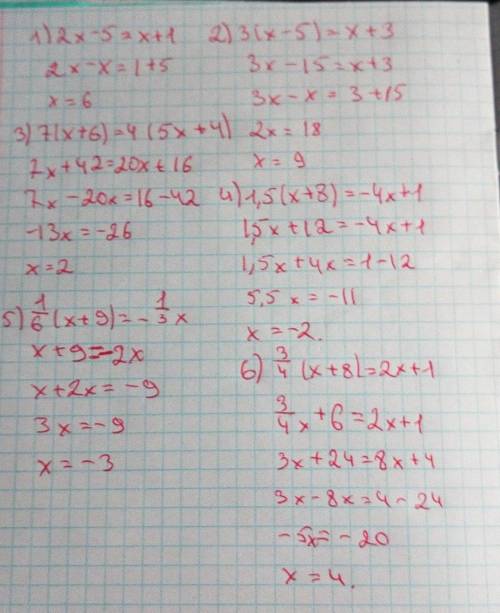 1) 2x-5=x+1
2x-x=1+5
x=6
2) 3(x-5)=x+3
3x-15=x+3
3x-x=3+15
2x=18
x=9
3) 7(x+6)=4(5x+4)
7x+42=20x+16
7x-20x=16-42
-13x=-26
x=2
4) 1,5(x+8)=-4x+1
1,5x+12=-4x+1
1,5x+4x=1-12
5,5x=-11
x=-2.
5) 1/6(x+9)=-1/3x
x+9=-2x
x+2x=-9
3x=-9
x=-3
6) 3/4(x+8)=2x+1
3/4x+6=2x+1
3x+24=8x+4
3x-8x=4-24
-5x=-20
x=4.